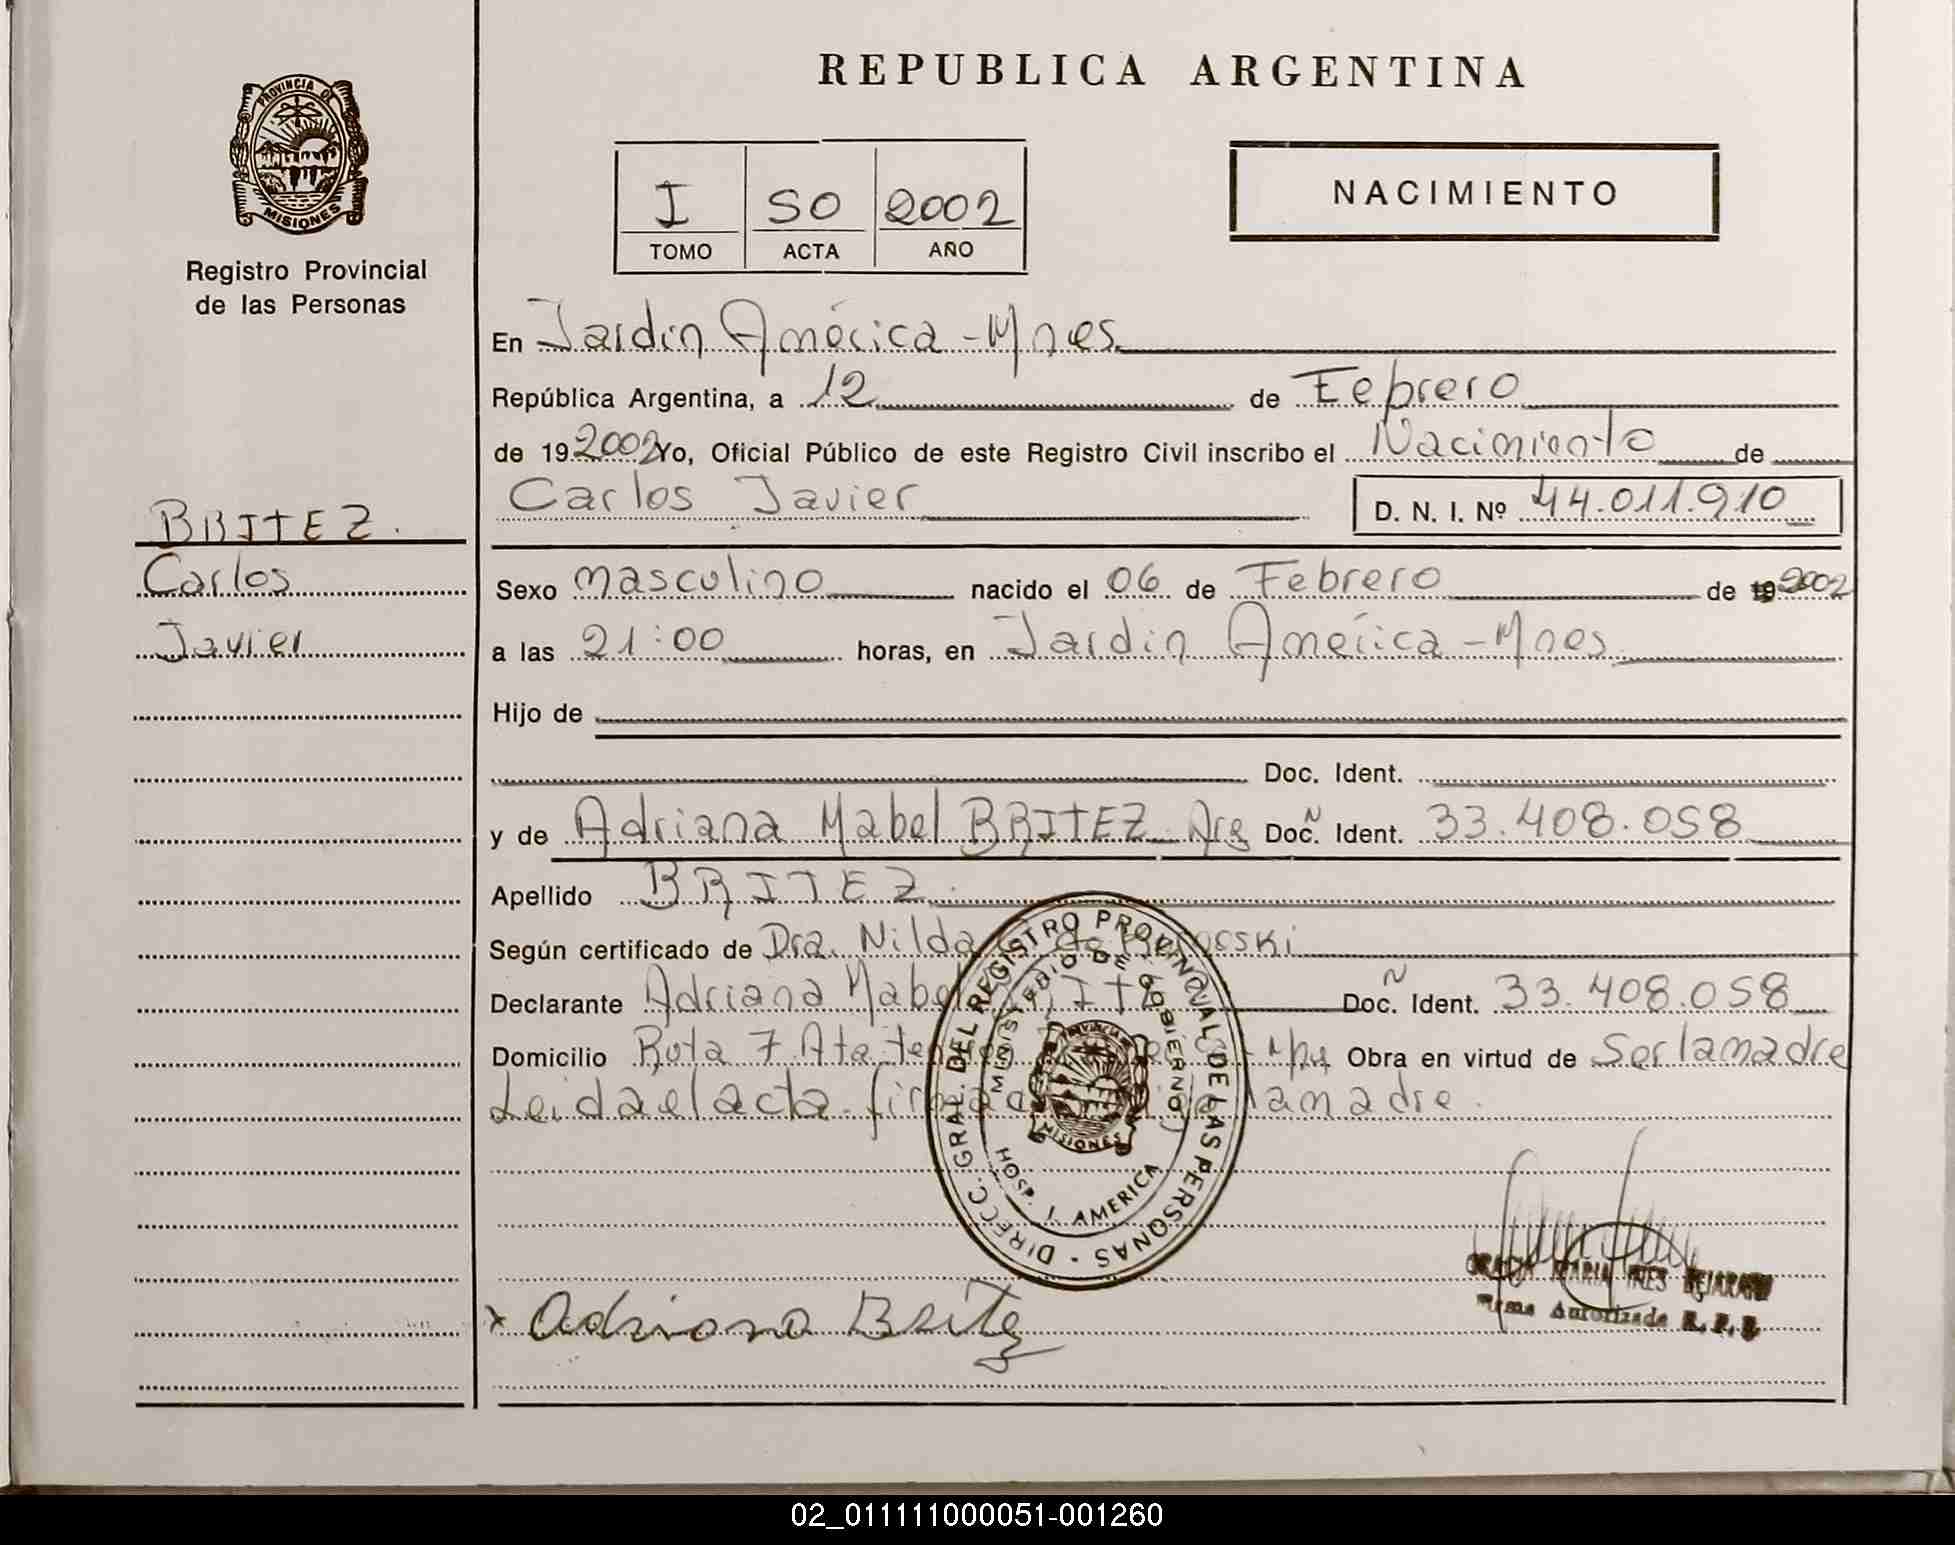 REPUBLICA ARGENTINA
PROVINCIA DE
MISIONES
Registro Provincial
de las Personas
I SO 2002
TOMO ACTA AÑO
NACIMIENTO
En Jardin América - Mnes.
República Argentina, a 12 de Febrero
de 19 2002 Yo, Oficial Público de este Registro Civil inscribo el Nacimiento de
Carlos Javier D. N. I. Nº 44.011.910
BRITEZ.
Carlos
Javier
Sexo masculino nacido el 06 de Febrero de 19 2002
a las 21:00 horas, en Jardin América - Mnes.
Hijo de
Doc. Ident.
y de Adriana Mabel BRITEZ Arg Doc. Ñ Ident. 33.408.058
Apellido BRITEZ.
Según certificado de Dra. Nilda de
Declarante Adriana Mabel BRITEZ Doc. Ñ Ident. 33.408.058
Domicilio Ruta 7 Obra en virtud de Ser la madre
Leida el acta firma la madre.
DIRECC. GRAL. DEL REGISTRO PROVINCIAL DE LAS PERSONAS -
MINISTERIO DE GOBIERNO
PROVINCIA
MISIONES
HOSP. J. AMERICA
x Adriana Britez
MARIA INES BEJARANO
Firma Autorizada R. P. P.
02_011111000051-001260